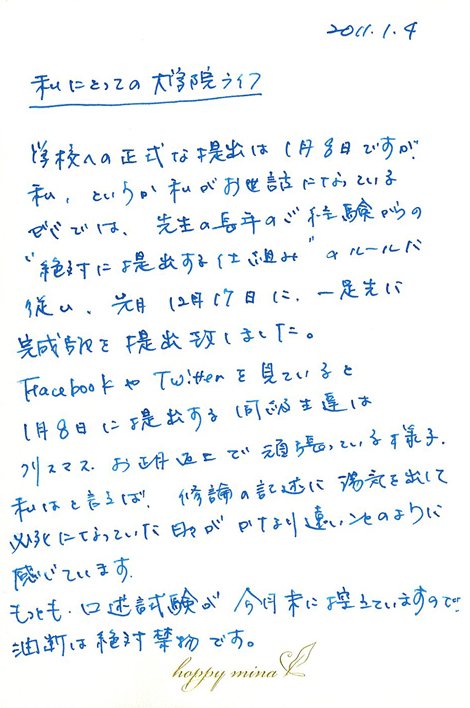 2011.1.4
私にとっての大学院ライフ
学校への正式な提出は1月8日ですが、
私、というか私がお世話になっている
ゼミでは、先生の長年のご経験からの
"絶対に提出する仕組み"のルールに
従い、先月12月17日に、一足先に
完成版を提出致しました。
FacebookやTwitterを見ていると
1月8日に提出する同級生達は
クリスマス、お正月返上で頑張っている様子。
私はと言えば、修論の記述に湯気を出して
必死になっていた日々がかなり遠い昔のように
感じています。
もっとも、口述試験が今月末に控えていますので、
油断は絶対禁物です。
happy mina